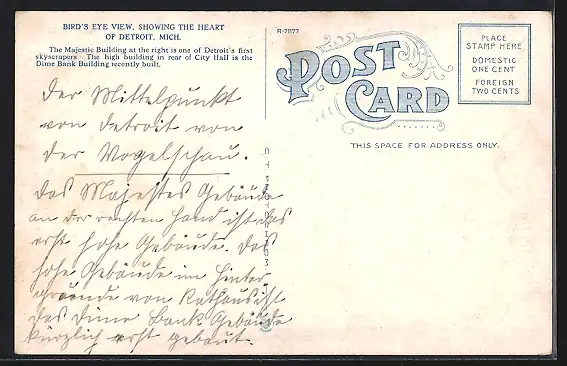 BIRD'S EYE VIEW, SHOWING THE HEART
OF DETROIT, MICH.
The Majestic Building at the right is one of Detroit's first
skyscrapers. The high building in rear of City Hall is the
Dime Bank Building recently built.
Der Mittelpunkt
von Detroit von
der Vogelschau.
Das Majestes Gebäude
an der rechten Hand ist das
erst hohe Gebäude. Das
hohe Gebäude im Hinter
grunde von Rathaus ist
das Dime Bank Gebäude
kürzlich erst gebaut.
R-71177
POST
CARD
THIS SPACE FOR ADDRESS ONLY.
PLACE
STAMP HERE
DOMESTIC
ONE CENT
FOREIGN
TWO CENTS